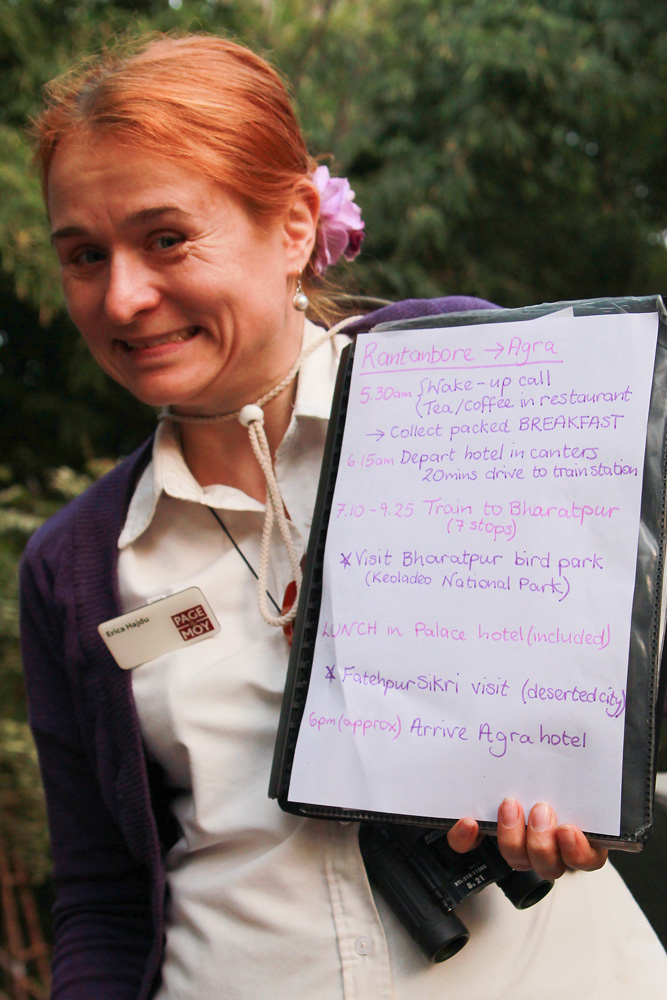 Rantanbore → Agra
5.30am { Wake-up call
Tea/Coffee in restaurant
→ Collect packed BREAKFAST
6.15am Depart hotel in canters
20mins drive to train station
7.10 - 9.25 Train to Bharatpur
(7 stops)
* Visit Bharatpur bird park
(Keoladeo National Park)
LUNCH in Palace hotel (included)
* Fatehpur Sikri visit (deserted city)
6pm (approx) Arrive Agra hotel
Erica Hajdu
PAGE
MOY
8x21